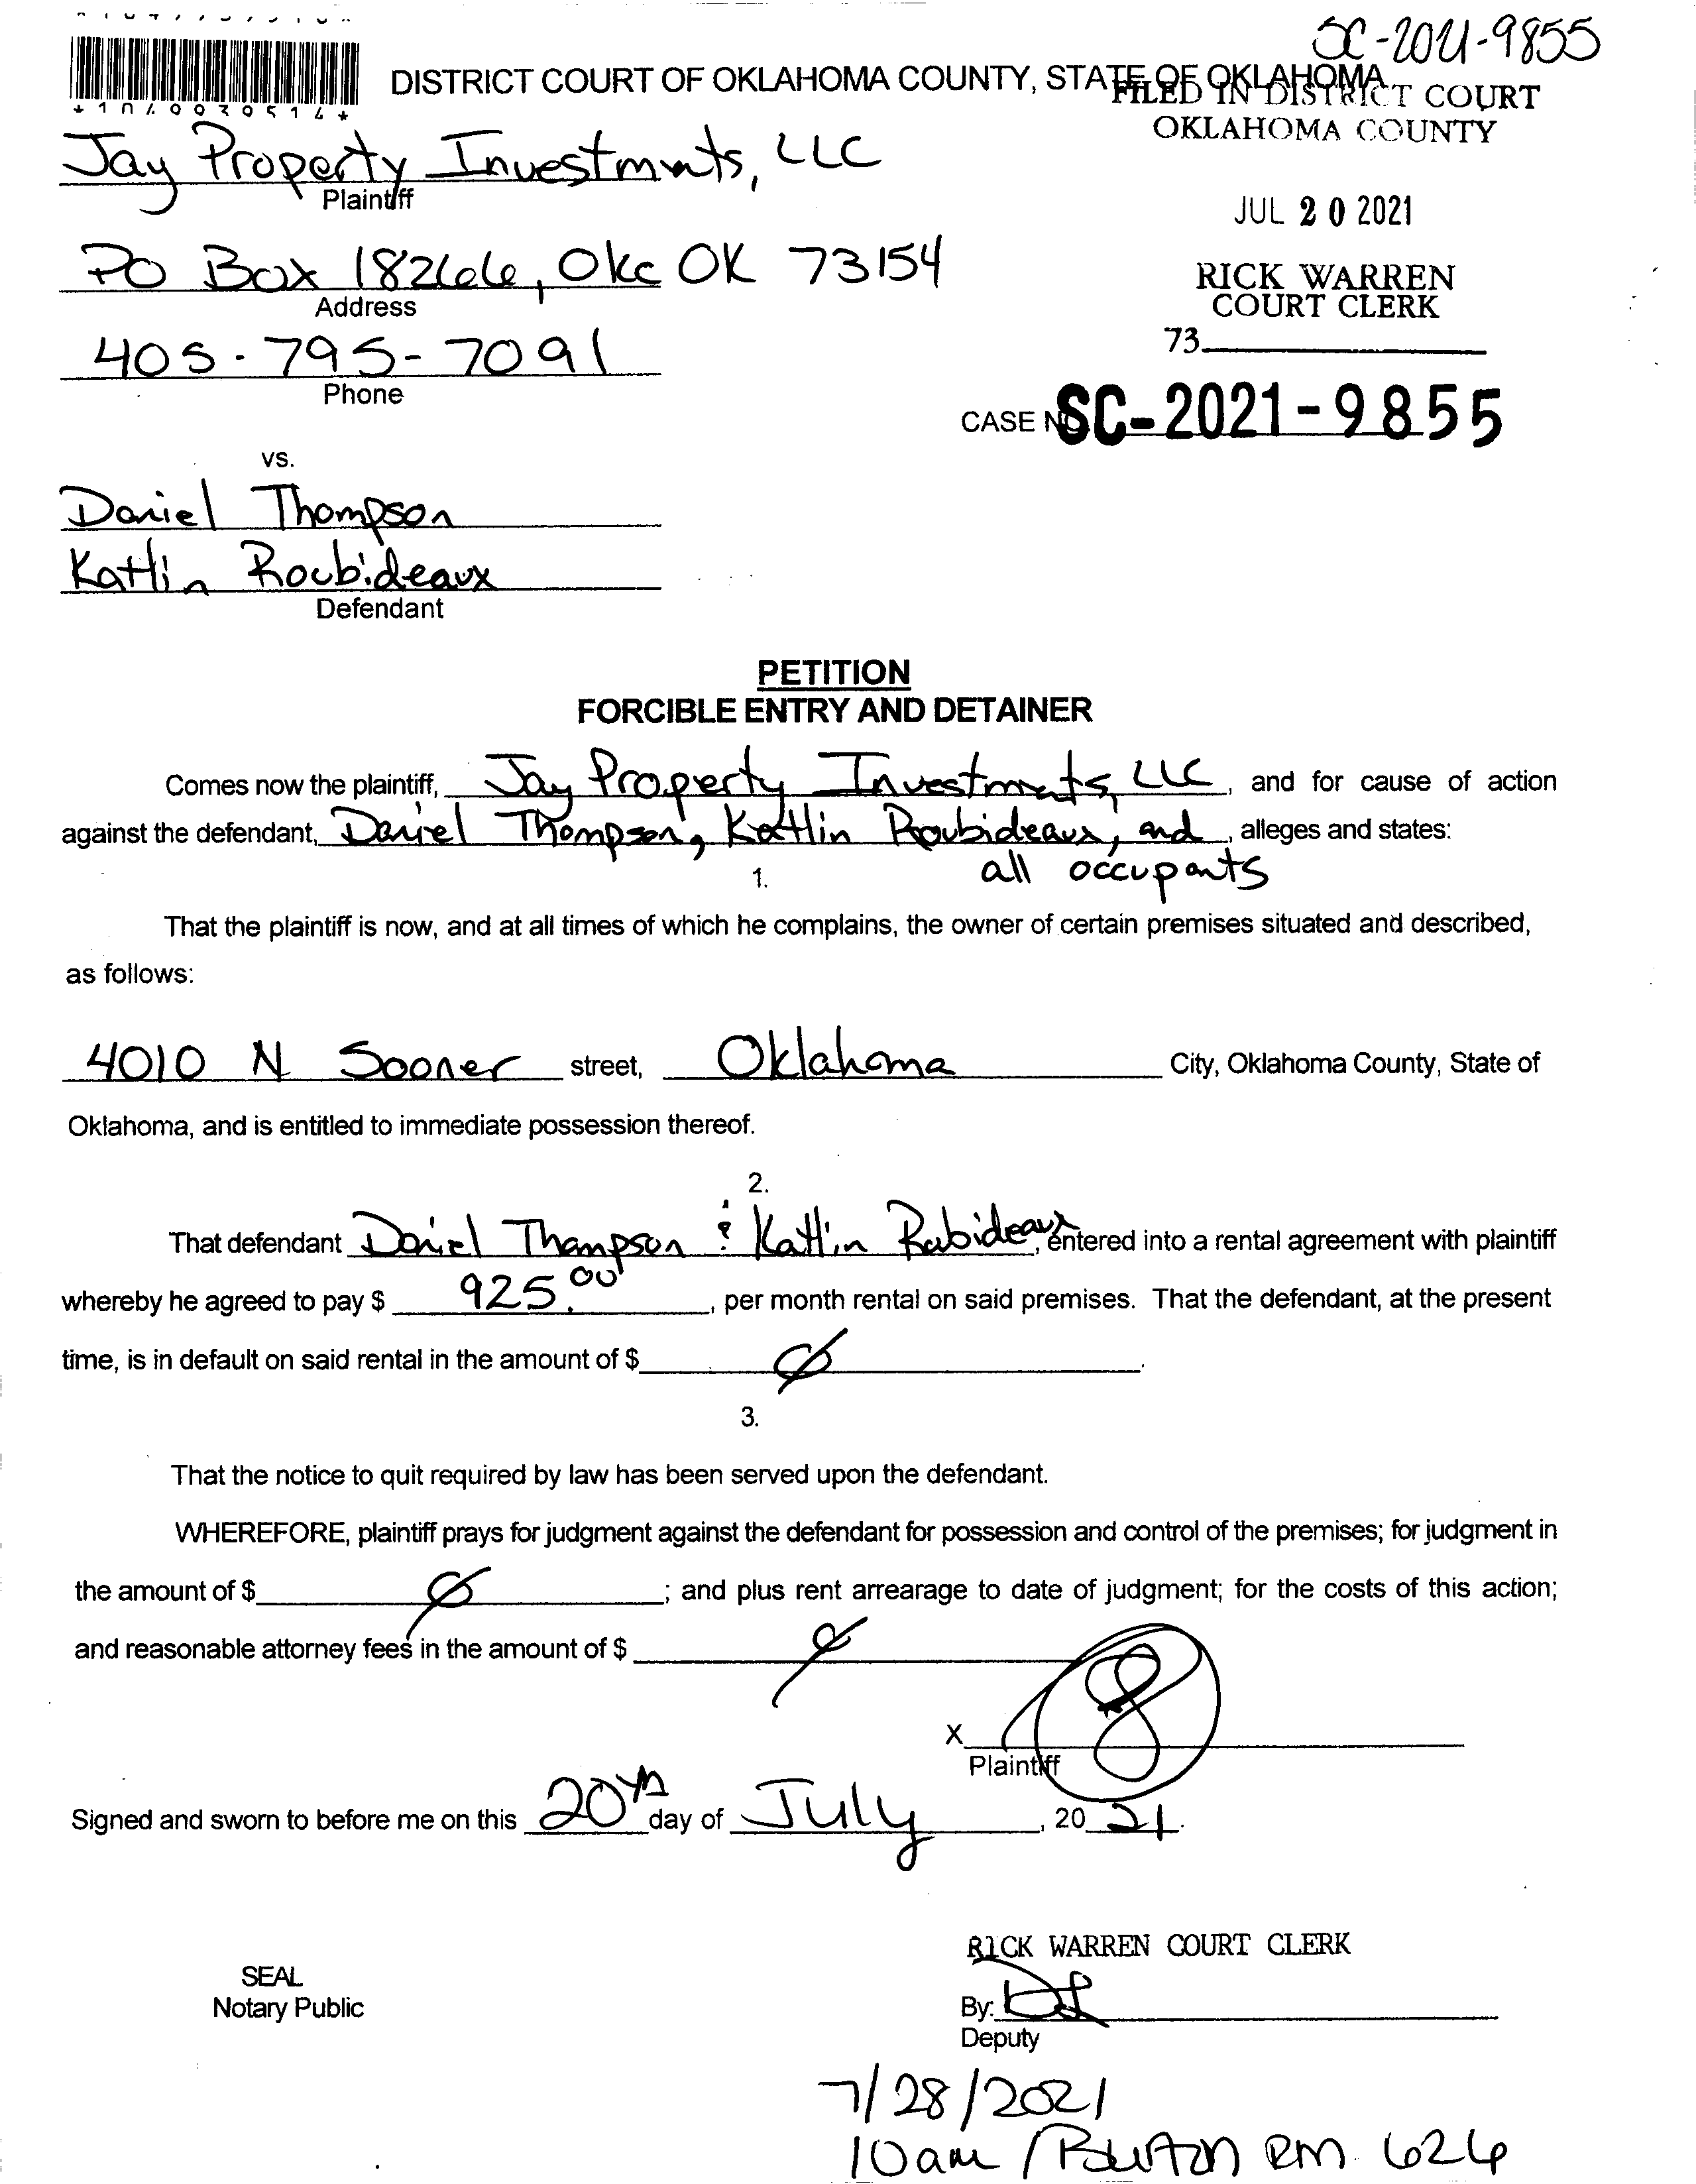 SC-2021-9855
DISTRICT COURT OF OKLAHOMA COUNTY, STATE OF OKLAHOMA
FILED IN DISTRICT COURT
OKLAHOMA COUNTY
Jay Property Investments, LLC
Plaintiff
JUL 20 2021
PO Box 18266, Okc OK 73154
Address
RICK WARREN
COURT CLERK
73
405-795-7091
Phone
CASE NO. SC-2021-9855
vs.
Daniel Thompson
Katlin Roubideaux
Defendant
PETITION
FORCIBLE ENTRY AND DETAINER
Comes now the plaintiff, Jay Property Investments, LLC, and for cause of action
against the defendant, Daniel Thompson, Katlin Roubideaux, and, alleges and states:
all occupants
1.
That the plaintiff is now, and at all times of which he complains, the owner of certain premises situated and described,
as follows:
4010 N Sooner street, Oklahoma City, Oklahoma County, State of
Oklahoma, and is entitled to immediate possession thereof.
2.
That defendant Daniel Thompson & Katlin Rubideaux, entered into a rental agreement with plaintiff
whereby he agreed to pay $ 925.00, per month rental on said premises. That the defendant, at the present
time, is in default on said rental in the amount of $ Ø.
3.
That the notice to quit required by law has been served upon the defendant.
WHEREFORE, plaintiff prays for judgment against the defendant for possession and control of the premises; for judgment in
the amount of $ Ø; and plus rent arrearage to date of judgment; for the costs of this action;
and reasonable attorney fees in the amount of $ Ø
X
Plaintiff
Signed and sworn to before me on this 20th day of July, 2021.
RICK WARREN COURT CLERK
SEAL
Notary Public
By:
Deputy
7/28/2021
10am / Burton RM 626